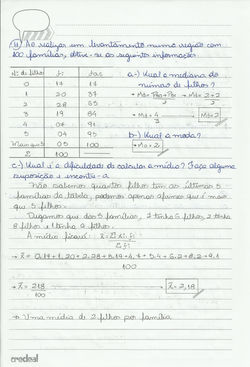 11) Ao realizar um levantamento numa região com
100 famílias, obteve-se as seguintes informações:
Nº de filhos fi fas
0 17 17
1 20 37
2 28 65
3 19 84
4 07 91
5 04 95
Mais que 5 05 100
Σ 100
a-) Qual a mediana do
número de filhos?
→ Md = P50 + P51 → Md = 2+2
2 2
→ Md = 4 → Md = 2
2
b-) Qual a moda?
→ Mo = 2
c-) Qual é a dificuldade de calcular a média? Faça alguma
suposição e encontre-a
Não sabemos quantos filhos tem as últimas 5
famílias da tabela, podemos apenas afirmar que é mais
que 5 filhos.
Digamos que das 5 famílias, 2 tenha 6 filhos, 2 tenha
8 filhos e 1 tenha 9 filhos.
A média ficaria: x̄ = Σ xi . fi
Σ fi
→ x̄ = 0.17+1.20+2.28+3.19+4.7+5.4+6.2+8.2+9.1
100
→ x̄ = 218 → x̄ = 2,18
100
→ Uma média de 2 filhos por família
credeal